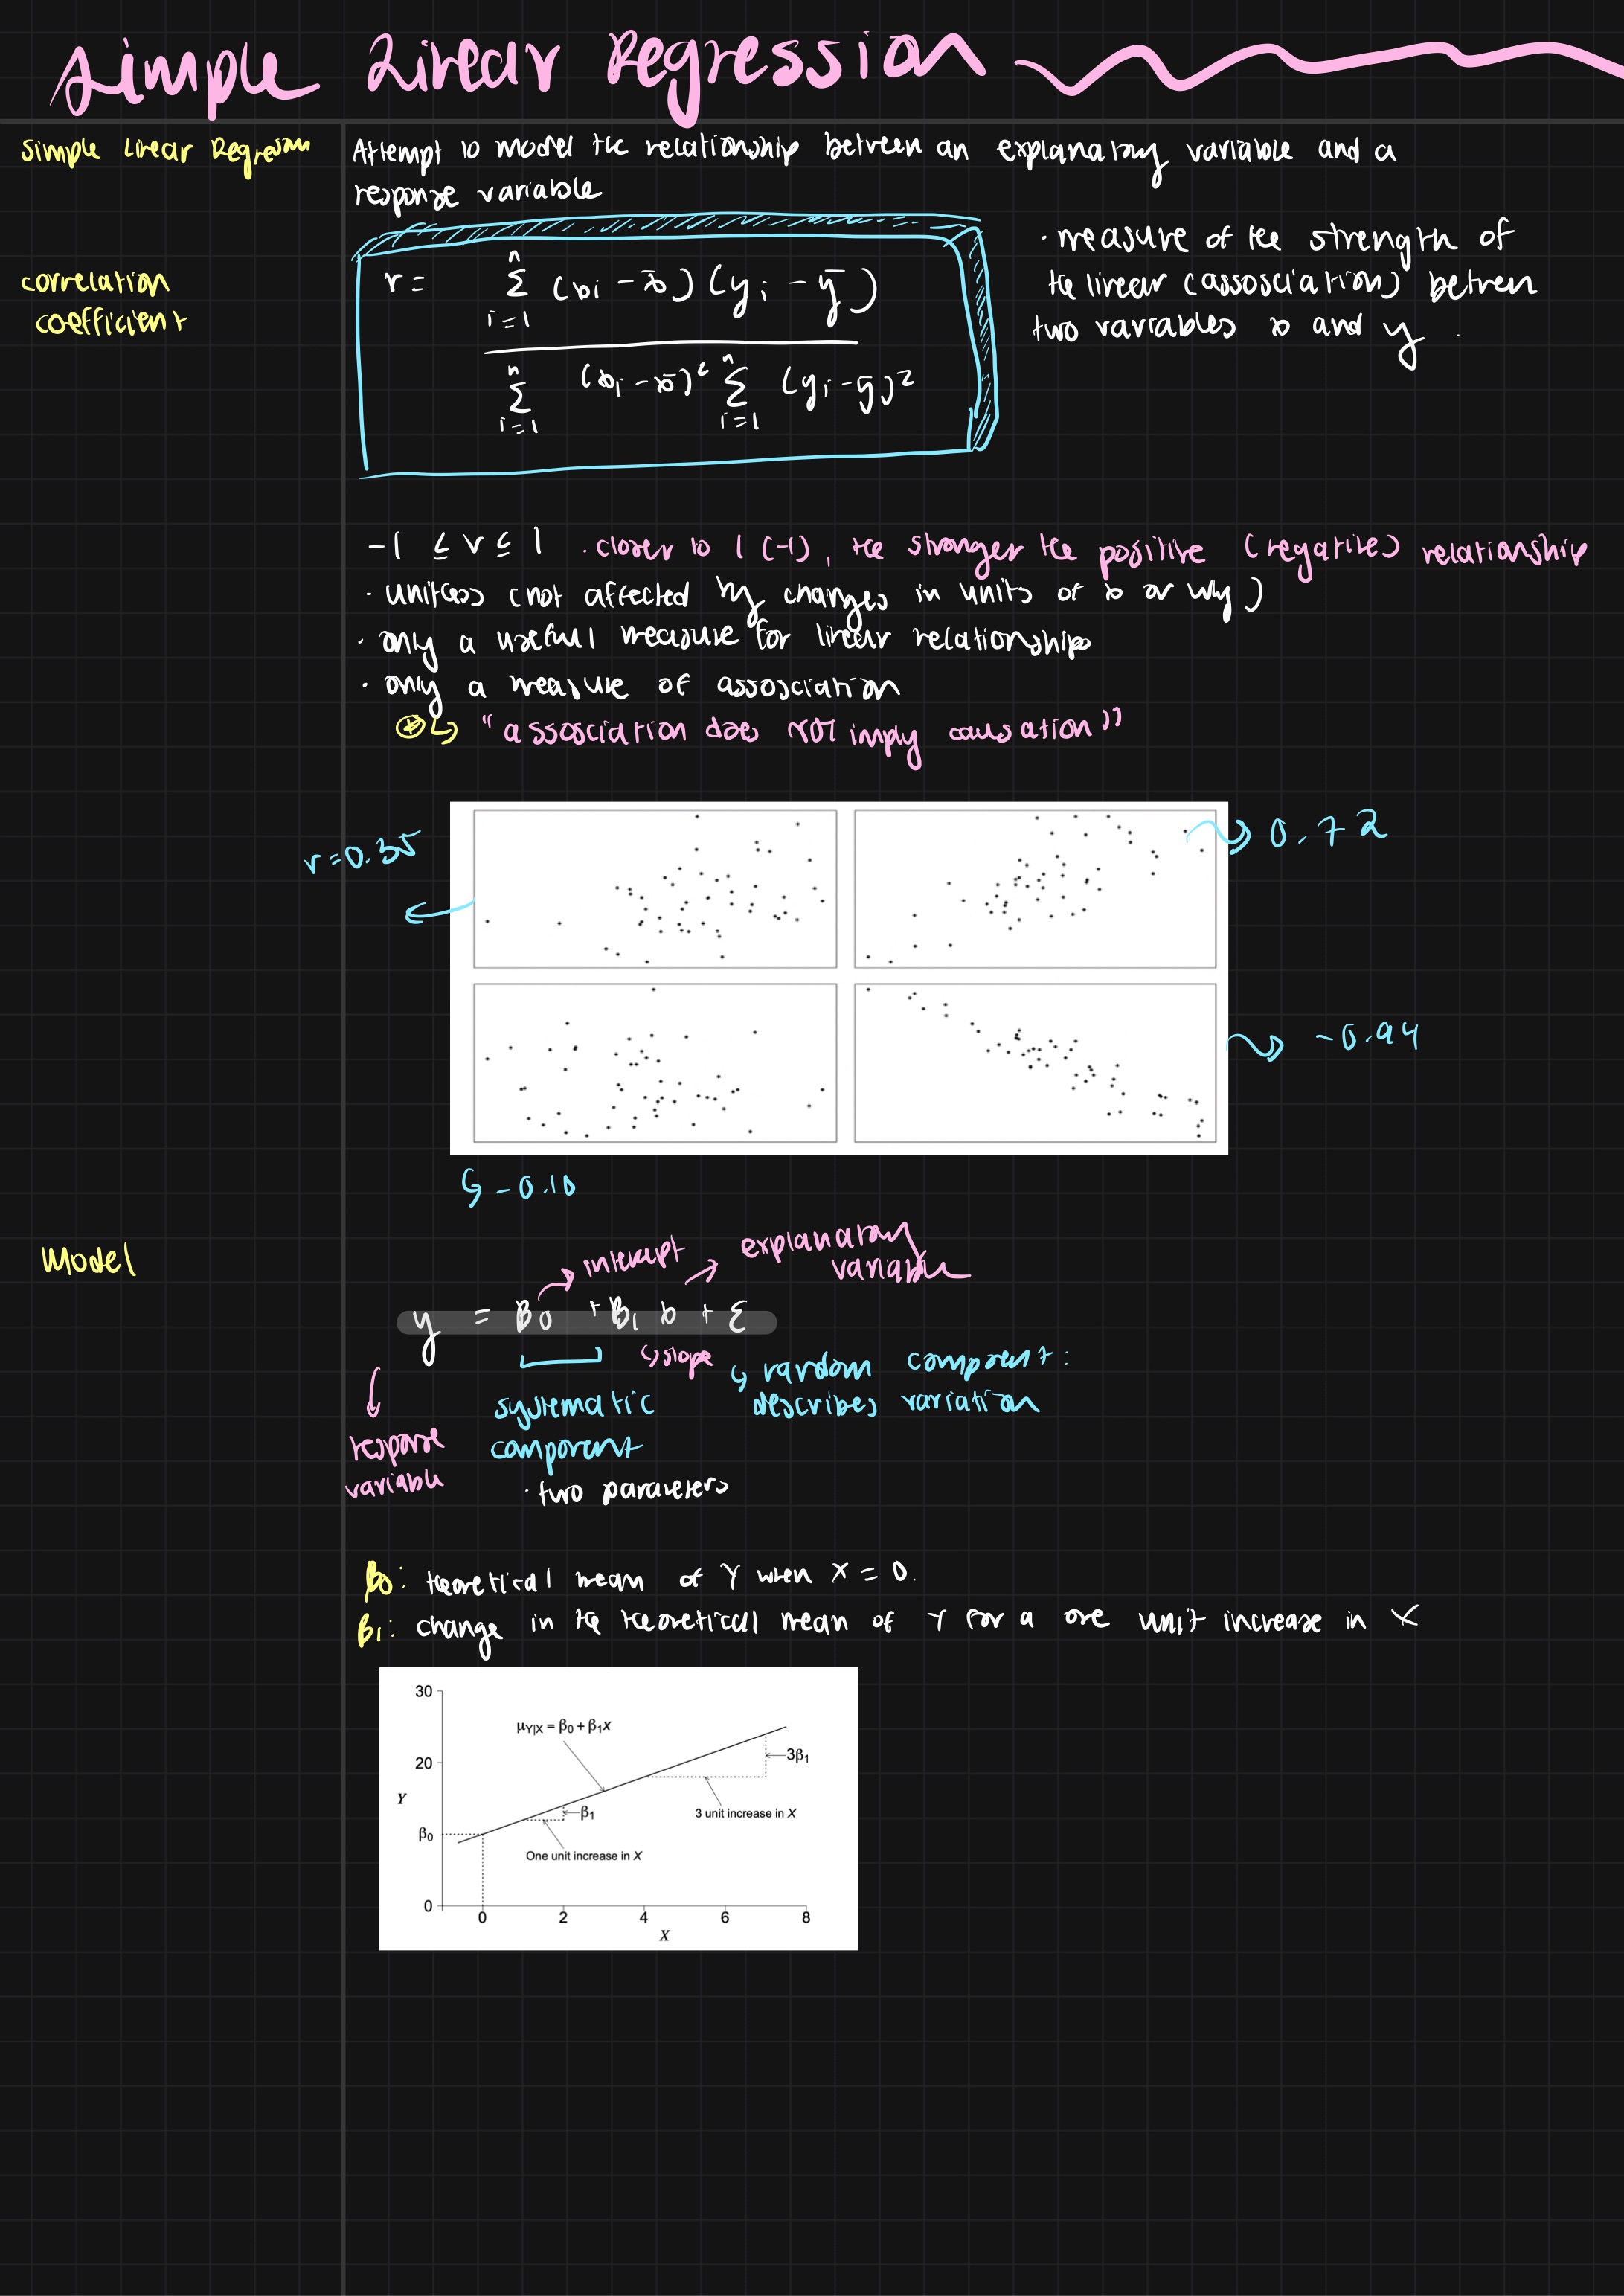 Simple Linear Regression
Simple Linear Regression
Attempt to model the relationship between an explanatory variable and a
response variable
correlation
coefficient
r = Σ (xi - x̄) (yi - ȳ)
n
i=1
Σ (xi - x̄)² Σ (yi - ȳ)²
n n
i=1 i=1
· measure of the strength of
the linear (assosciation) between
two variables x and y .
-1 ≤ r ≤ 1 · closer to 1 (-1), the stronger the positive (negative) relationship
· unitless (not affected by changes in units of x or why)
· only a useful measure for linear relationships
· only a measure of assosciation
"assosciation does NOT imply causation"
r=0.35
0.72
-0.94
-0.10
Model
intercept
explanatory
variable
y = B0 + B1 x + ε
slope
random component:
describes variation
systematic
component
response
variable
· two parameters
β0: theoretical mean of Y when X = 0.
β1: change in the theoretical mean of Y for a one unit increase in X
30
μY|X = β0 + β1x
20
3β1
Y
β1
3 unit increase in X
β0
One unit increase in X
0
0 2 4 6 8
X